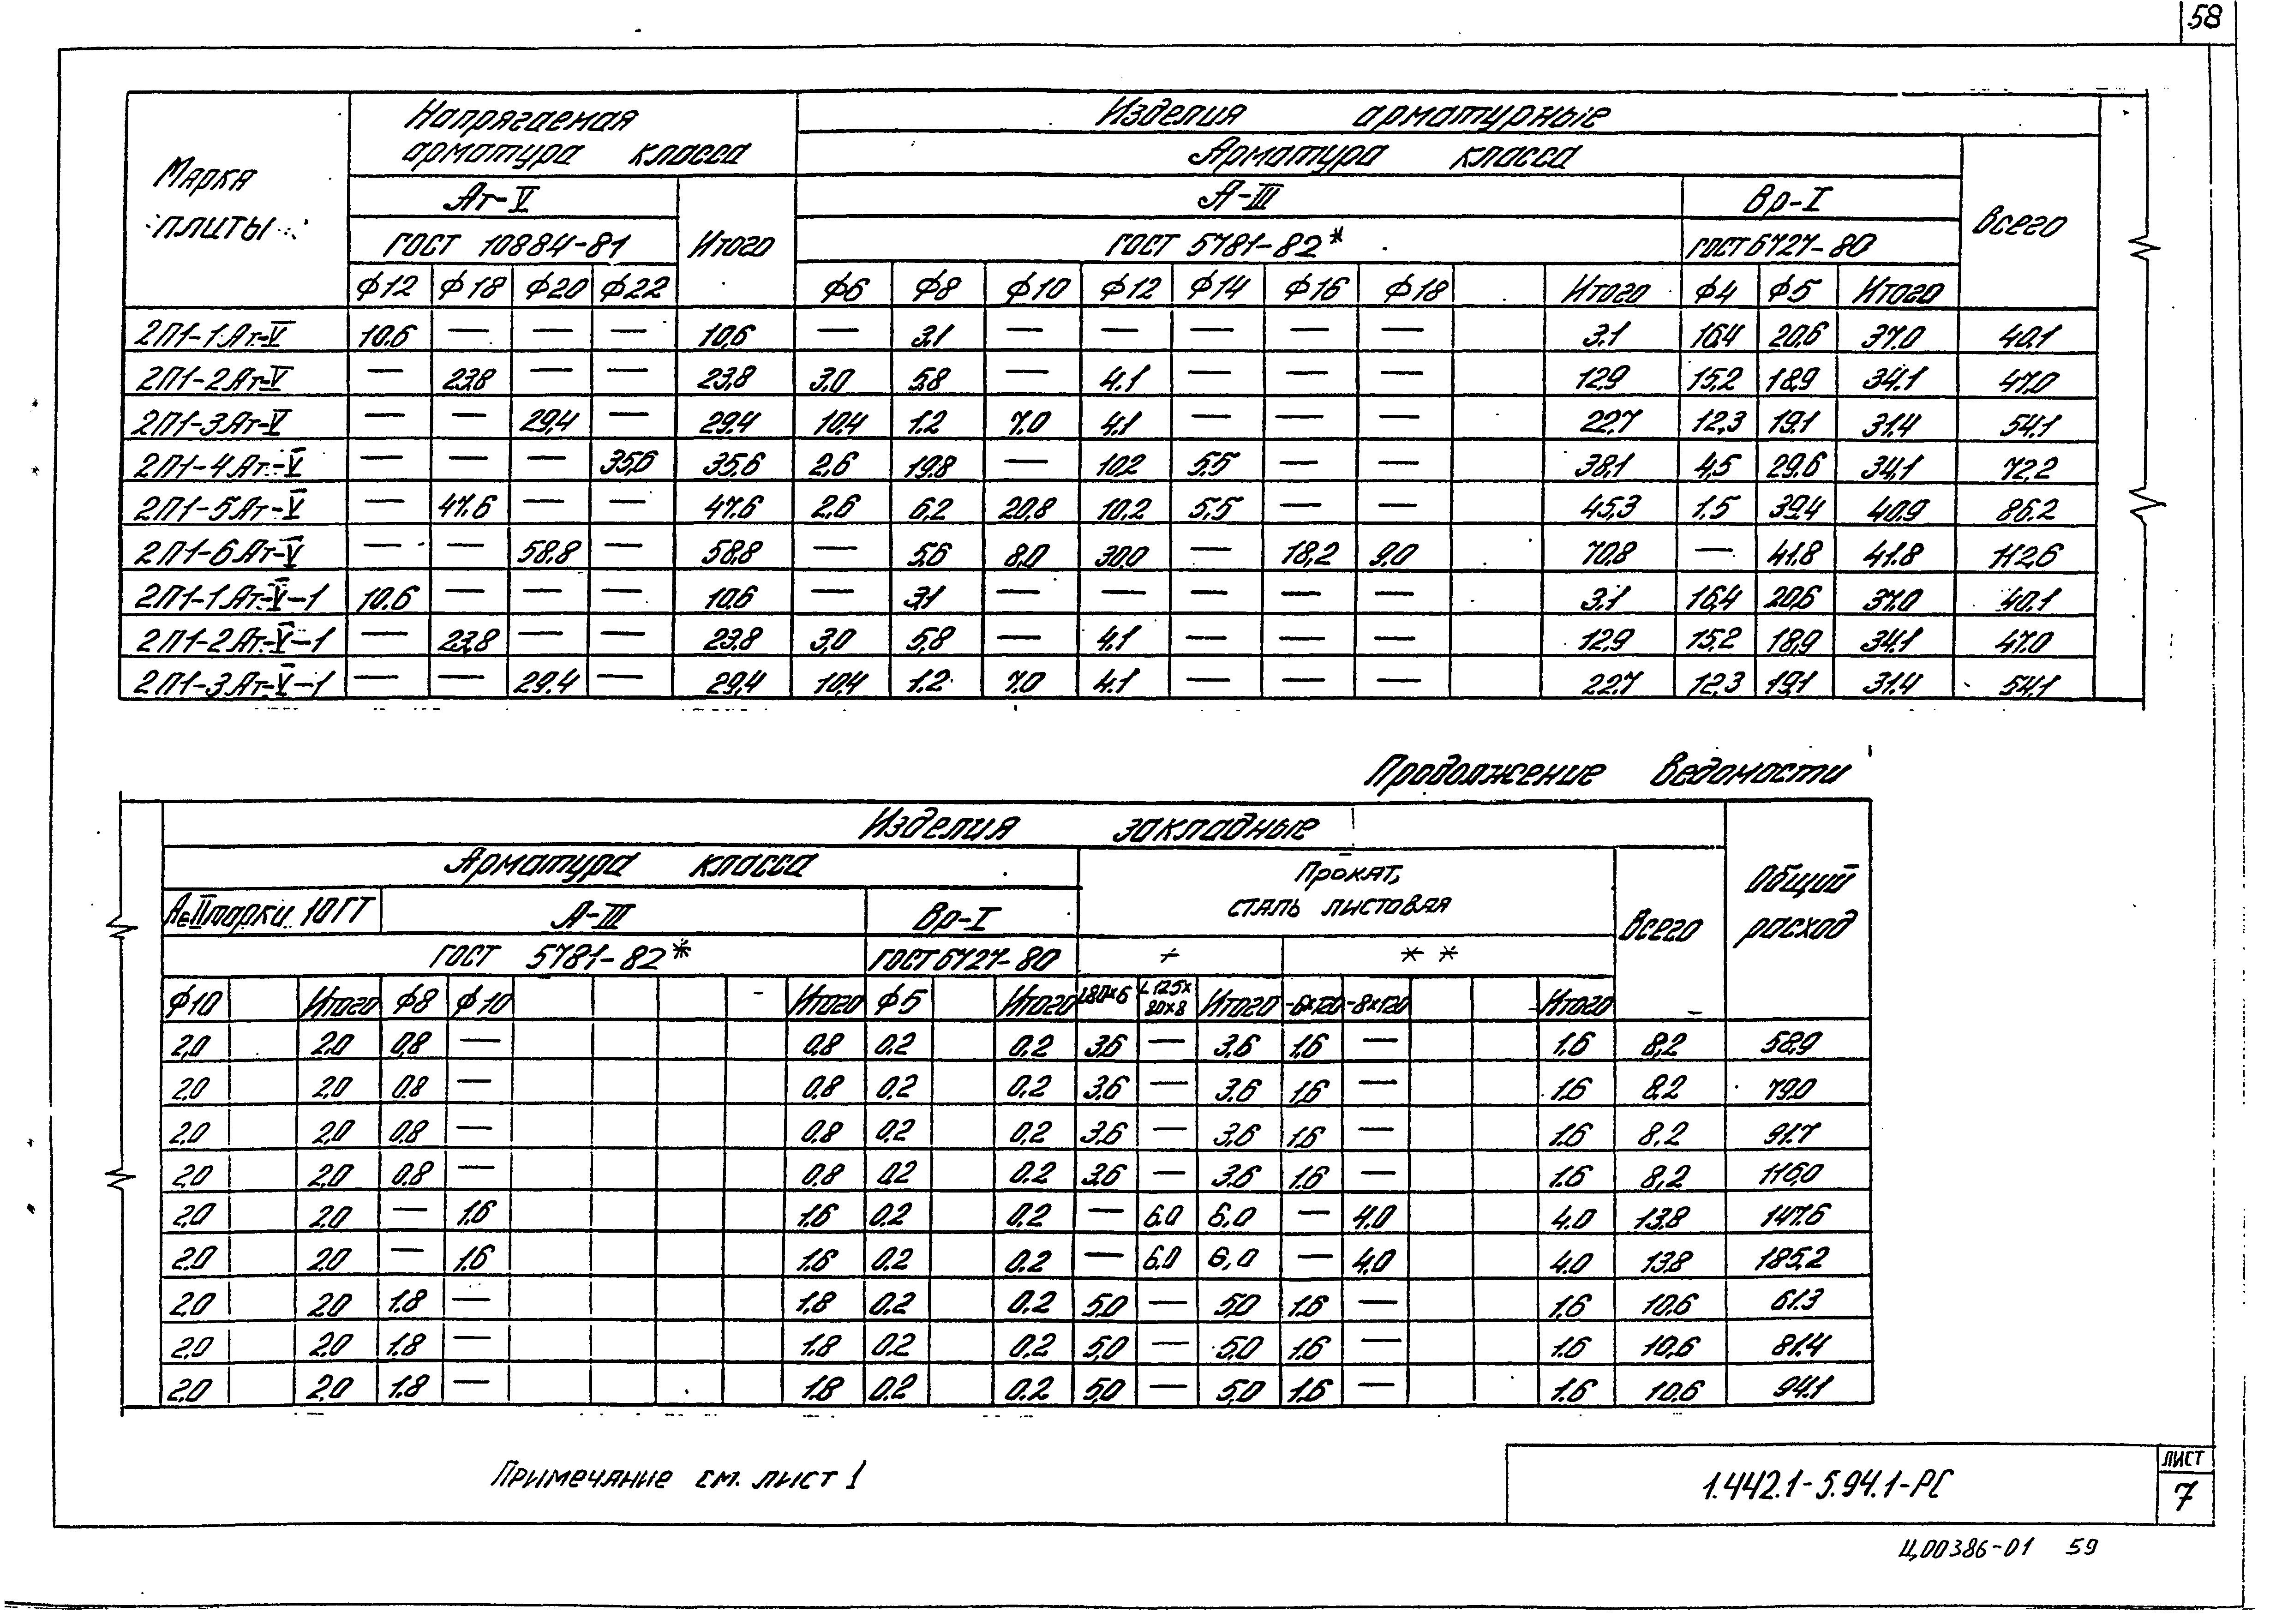 58
Марка плиты | Напрягаемая арматура класса | Изделия арматурные
Арматура класса | Всего
Ат-V | Итого | А-III | Вр-I
ГОСТ 10884-81 | ГОСТ 5781-82* | ГОСТ 6727-80
ϕ12 ϕ18 ϕ20 ϕ22 | ϕ6 ϕ8 ϕ10 ϕ12 ϕ14 ϕ16 ϕ18 Итого | ϕ4 ϕ5 Итого
2П1-1Ат-V 10.6 — — — 10,6 — 3,1 — — — — — 3.1 16,4 20,6 37.0 40.1
2П1-2Ат-V — 23,8 — — 23,8 3,0 5,8 — 4.1 — — — 12,9 15,2 18,9 34.1 47.0
2П1-3Ат-V — — 29,4 — 29,4 10,4 1.2 7.0 4.1 — — — 22,7 12,3 19,1 31,4 54,1
2П1-4Ат-V — — — 35,6 35,6 2,6 19,8 — 10,2 5.5 — — 38,1 4,5 29,6 34,1 72,2
2П1-5Ат-V — 47.6 — — 47.6 2,6 6,2 20,8 10,2 5,5 — — 45,3 1.5 39,4 40.9 86.2
2П1-6Ат-V — — 58,8 — 58,8 — 5,6 8,0 30,0 — 18,2 9,0 70,8 — 41.8 41.8 112,6
2П1-1Ат-V-1 10.6 — — — 10,6 — 3,1 — — — — — 3.1 16,4 20,6 37.0 40.1
2П1-2Ат-V-1 — 23,8 — — 23,8 3,0 5,8 — 4.1 — — — 12,9 15,2 18,9 34.1 47.0
2П1-3Ат-V-1 — — 29.4 — 29,4 10,4 1.2 7.0 4.1 — — — 22,7 12,3 19,1 31.4 54,1
Продолжение ведомости
Изделия закладные | Общий расход
Арматура класса | Прокат, сталь листовая | Всего
АсII марки 10ГТ | А-III | Вр-I
ГОСТ 5781-82* | ГОСТ 6727-80 | * | * *
ϕ10 Итого ϕ8 ϕ10 Итого ϕ5 Итого L80×6 L125×80×8 Итого -6×120 -8×120 Итого
2,0 2,0 0,8 — 0,8 0.2 0.2 3,6 — 3,6 1.6 — 1.6 8,2 58,9
2,0 2,0 0,8 — 0,8 0,2 0,2 3,6 — 3,6 1.6 — 1.6 8,2 79,0
2,0 2,0 0,8 — 0,8 0,2 0,2 3,6 — 3,6 1.6 — 1.6 8,2 91.7
2,0 2,0 0.8 — 0,8 0,2 0.2 3,6 — 3,6 1.6 — 1.6 8,2 116,0
2,0 2,0 — 1.6 1.6 0.2 0.2 — 6.0 6.0 — 4.0 4.0 13,8 147.6
2,0 2,0 — 1.6 1.6 0.2 0.2 — 6.0 6,0 — 4.0 4.0 13,8 185,2
2,0 2,0 1.8 — 1.8 0.2 0.2 5,0 — 5,0 1.6 — 1.6 10,6 61.3
2,0 2,0 1.8 — 1.8 0.2 0,2 5,0 — 5,0 1.6 — 1.6 10,6 81.4
2,0 2.0 1.8 — 1.8 0.2 0.2 5,0 — 5,0 1.6 — 1.6 10,6 94.1
Примечание см. лист 1
1.442.1-5.94.1-РС
лист
7
Ц00386-01 59